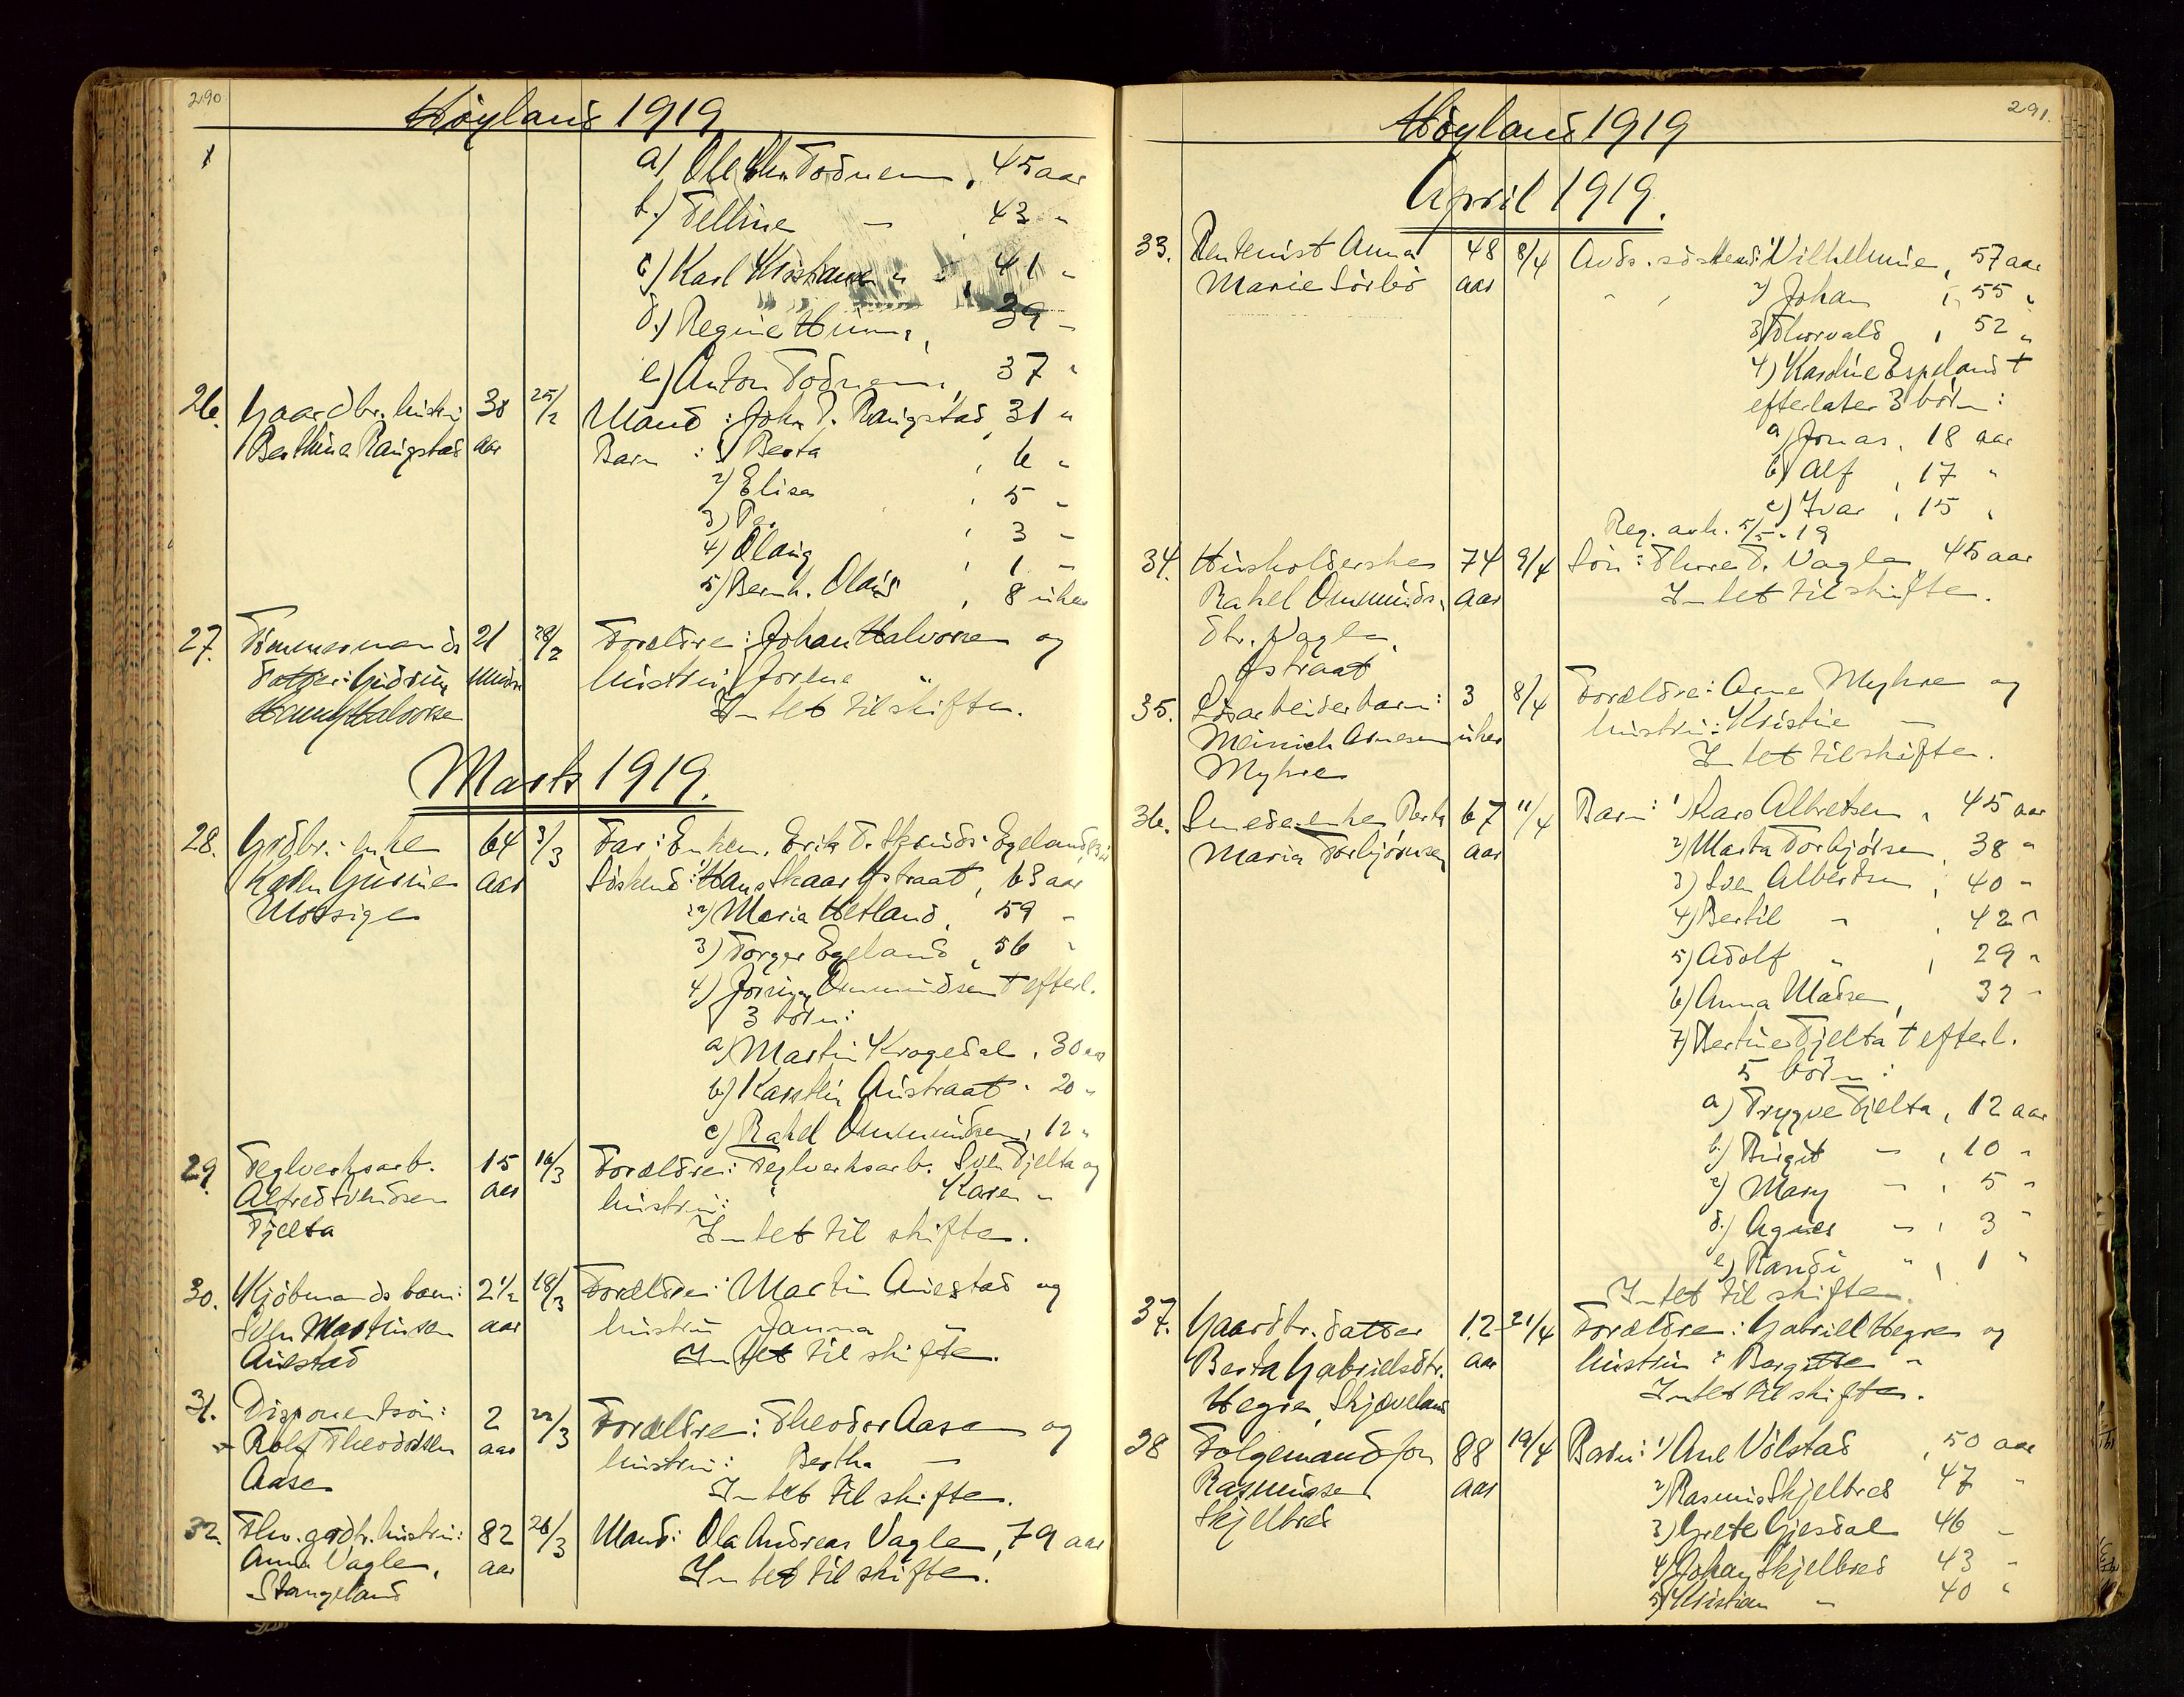 290
Höyland 1919
a) Ole Chr. Todnem, 45 aar
b.)Ælline — , 43 "
c) Karl Kristian " - , 41 "
d.) Regine Hinna, 39 -
e) Anton Todnem, 37 "
26. Gaardbr. hustru 30 25/2 Mand: John T. Raugstad, 31 "
Berthine Raugstad aar Barn: 1) Berta , 6 "
2) Elisa , 5 "
3) Per , 3 -
4) Olaug , 1 -
5) Bernh. Olaus , 8 uker
27. Tömmermands 21 28/2 Forældre: Johan Halvorsen og
datter: Gudrun hustru Jorine "
Halvorsen Intet til skifte.
Marts 1919.
28. Grdbr. enke 64 3/3 Far: Enkem. Erik T. Skeids-Egeland
Karen Gurine aar Söskend: 1) Hans Skaar Ystraat, 63 aar
Mossige 2) Maria Hetland, 59 -
3) Torger Egeland, 56 "
4) Ommundsen † efterl.
3 börn:
a) Martin Krogedal, 30 aar
b) Karstein Austraat, 20 "
c) Rakel Ommundsen, 12 "
29. Teglverksarb. 15 16/3 Forældre: Teglverksarb. Sven Tjelta og
Alfred Svendsen aar hustru: Karen "
Tjelta Intet til skifte.
30. Kjöbmands barn: 2 1/2 18/3 Forældre: Martin Auestad og
Sven Martinsen aar hustru Janna "
Auestad Intet til skifte.
31. Disponentsön: 2 22/3 Forældre: Theodor Aase og
Rolf Theodorsen aar hustru: Bertha —
Aase Intet til skifte.
32. Fhv. grdbr. hustru: 82 26/3 Mand: Ola Andreas Vagle, 79 aar
Anna Vagle, aar Intet til skifte.
Stangeland
291.
Höyland 1919
April 1919.
33. Rentenist Anna 48 8/4 Avds. söskend: 1) Vilhelmine, 57 aar
Marie Sörbö aar 2) Johan , 55 "
3) Thorvald , 52 "
4) Karoline Espeland †
efterlater 3 börn:
a) Jonas, 18 aar
b) Alf , 17 "
c) Ivar , 15 "
Reg. avh. 5/5-19
34. Husholderske 74 9/4 Sön: Thore T. Vagle, 45 aar
Rakel Ommunds. aar Intet til skifte.
dtr. Vagle,
Ystraat
35. Lösarbeiderbarn: 3 8/4 Forældre: Arne Myhre og
Meinich Arnesen uker hustru: Kristine —
Myhre Intet til skifte.
36. Smedenke Berta 67 11/4 Barn: 1) Lars Albretsen, 45 aar
Maria Torbjörnsen aar 2) Marta Torbjörnsen, 38 "
3) Sven Albretsen, 40 -
4) Bertil - , 42 "
5) Adolf " , 29 "
6) Anna Madsen, 32 -
7) Bertine Tjelta † efterl.
5 börn:
a) Trygve Tjelta, 12 aar
b.) Birgit - , 10 "
c) Mary - , 5 "
d.) Agnes - , 3 "
e) Randi " , 1 "
Intet til skifte.
37. Gaardbr. datter 12 21/4 Forældre: Gabriel Hegre og
Berta Gabrielsdtr. aar hustru: Bergitte "
Hegre, Skjæveland Intet til skifte.
38 Folgemand Jon 88 19/4 Barn: 1) Ane Völstad , 50 aar
Rasmussen aar 2) Rasmus Skjelbred 47 "
Skjelbred 3) Grete Gjesdal 46 -
4) Johan Skjelbred 43 "
5) Kristian " 40 "